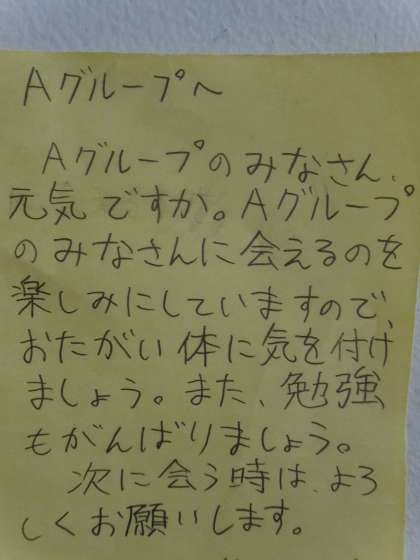 Aグループへ
Aグループのみなさん、
元気ですか。Aグループ
のみなさんに会えるのを
楽しみにしていますので、
おたがい体に気を付け
ましょう。また、勉強
もがんばりましょう。
次に会う時は、よろ
しくお願いします。